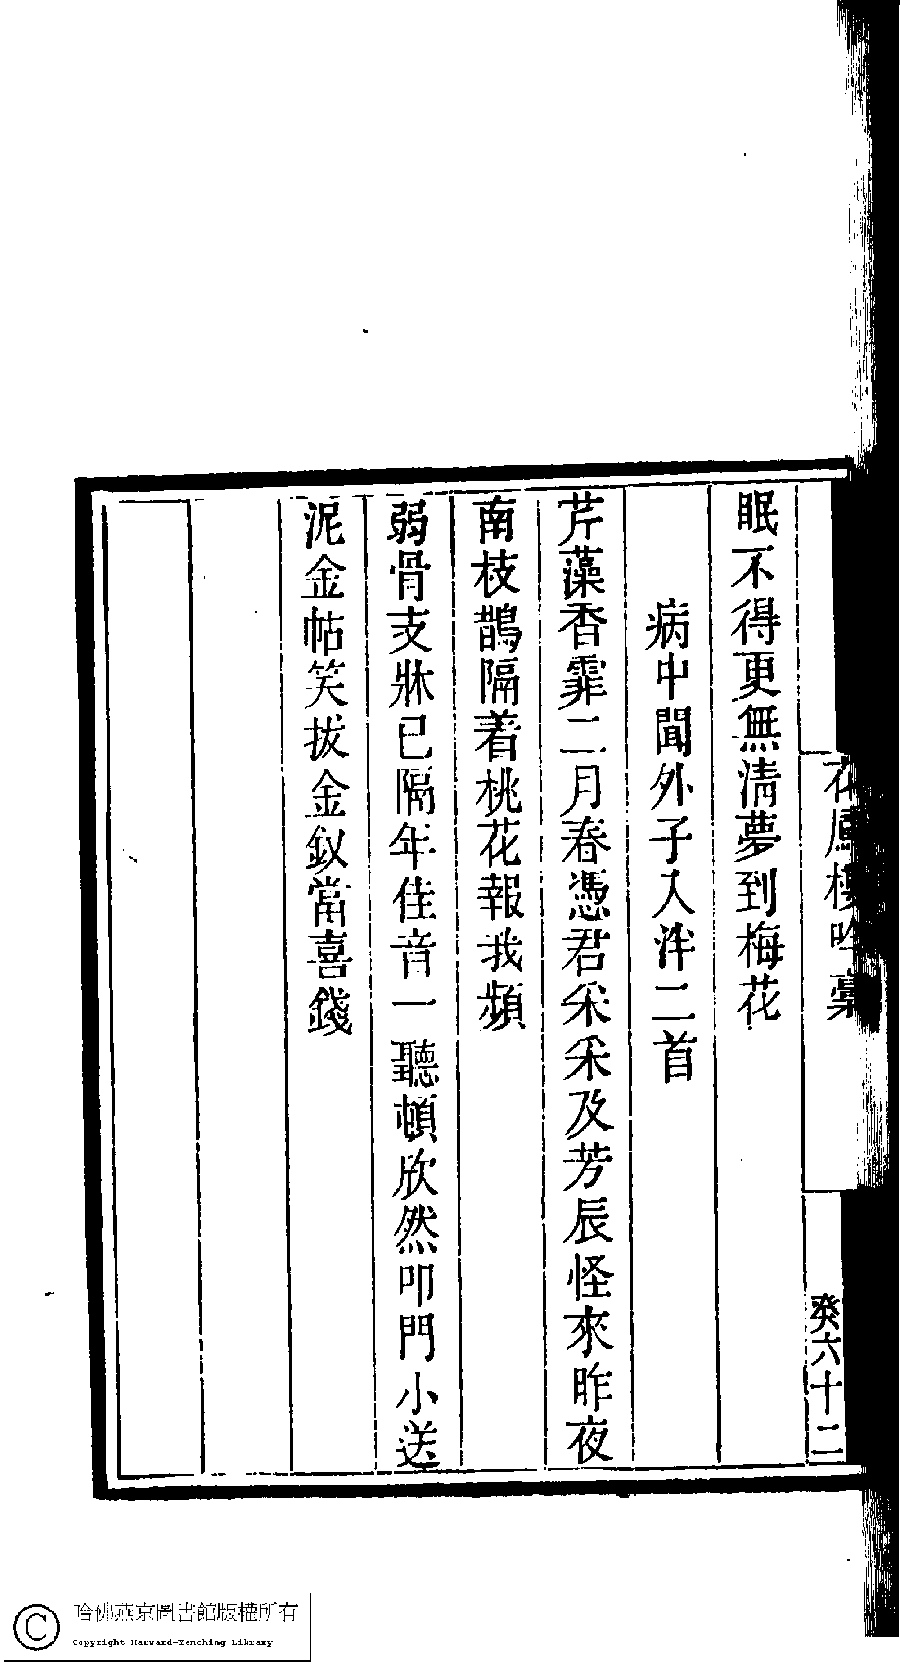 花鳳樓吟稾
癸六十二
眠不得更無清夢到梅花
病中聞外子入泮二首
芹藻香霏二月春憑君采采及芳辰怪來昨夜
南枝鵲隔着桃花報我頻
弱骨支牀已隔年佳音一聽頓欣然叩門小送
泥金帖笑拔金釵當喜錢
哈佛燕京圖書館版權所有
Copyright Harvard-Yenching Library